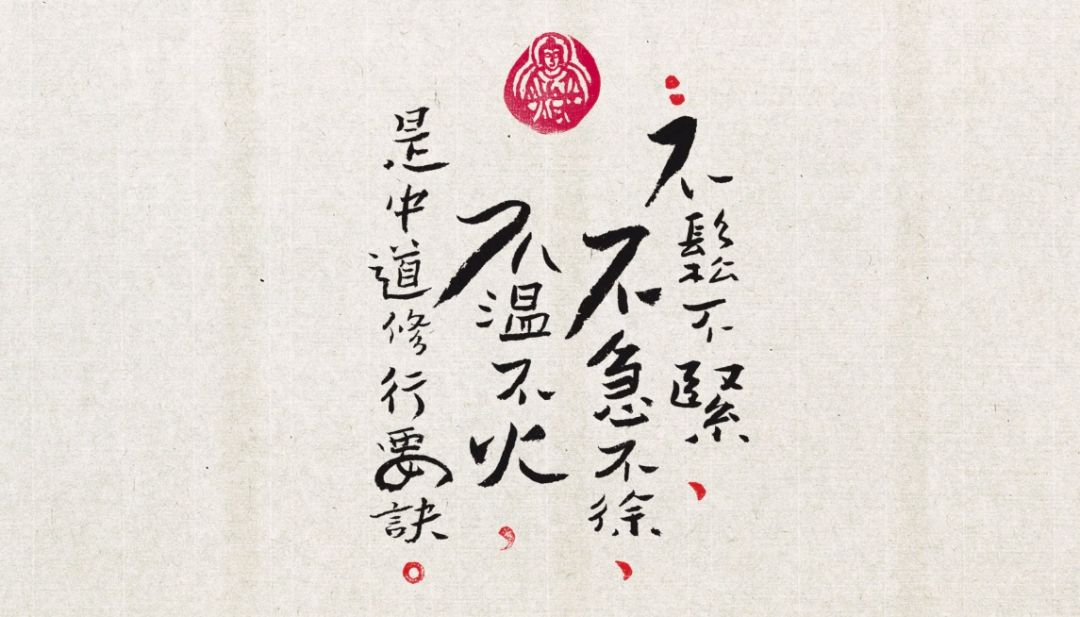 不鬆不緊、
不急不徐、
不温不火，
是中道修行要訣。